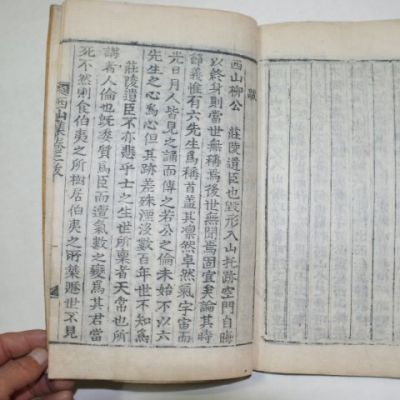 跋
西山柳公 莊陵遺臣也毁形入山托跡空門自晦
以終身則當世無稱焉後世無聞焉固宜矣論其時
節義惟有六先生爲稱首盖其凛然卓然氣宇宙而
光日月人皆見之誦而傳之若公之倫未始不以六
先生之心爲心但其跡差殊湮沒數百年世不知爲
莊陵遺臣不亦悲乎士之生世所稟者天常也所
講者人倫也旣委質爲臣而遭氣數之變爲其君當
死不然則食伯夷之所樹居伯夷之所築懸世不見
西山集卷三 跋 一